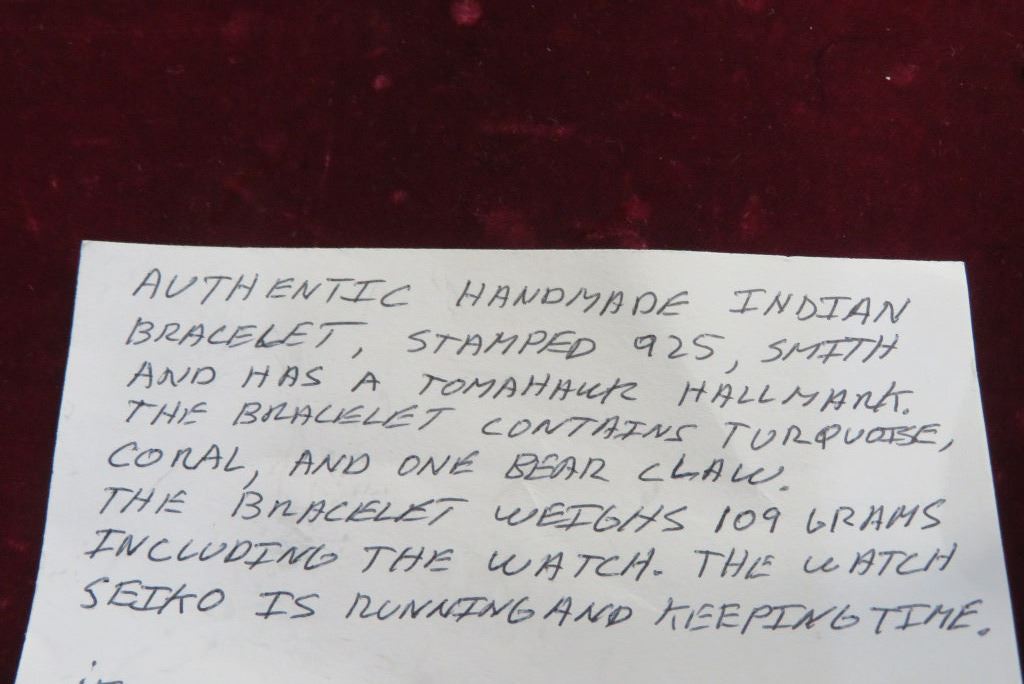 AUTHENTIC HANDMADE INDIAN
BRACELET, STAMPED 925, SMITH
AND HAS A TOMAHAWK HALLMARK.
THE BRACELET CONTAINS TURQUOISE,
CORAL, AND ONE BEAR CLAW.
THE BRACELET WEIGHS 109 GRAMS
INCLUDING THE WATCH. THE WATCH
SEIKO IS RUNNING AND KEEPING TIME.